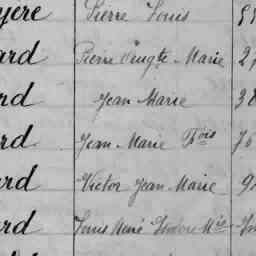 yere Pierre Louis 55
ard Pierre Vingte Marie 2
rd Jean Marie 38
rd Jean Marie Fois 70
ard Victor Jean Marie 9
ard Louis René